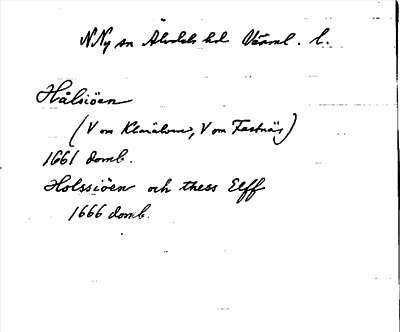 N. Ny sn Älvdals hd Värml. l.
Hålsiöen
(V om Klarälven, V om Fastnäs)
1661 domb.
Holssiöen och thess Elff
1666 domb.